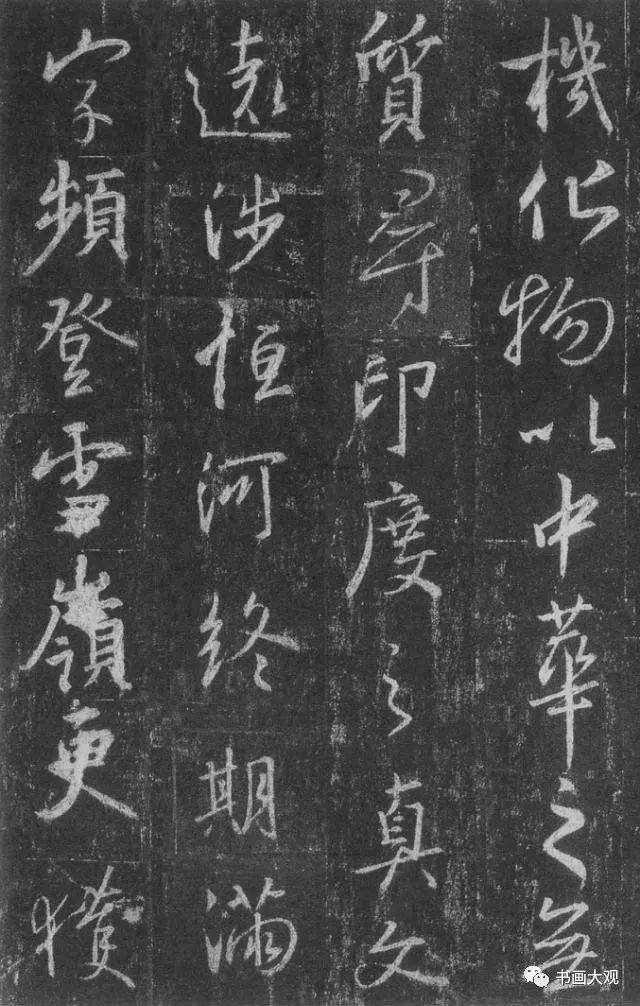 機化物以中華之無
質尋印度之真文
遠涉恒河終期滿
字頻登雪嶺更獲
书画大观